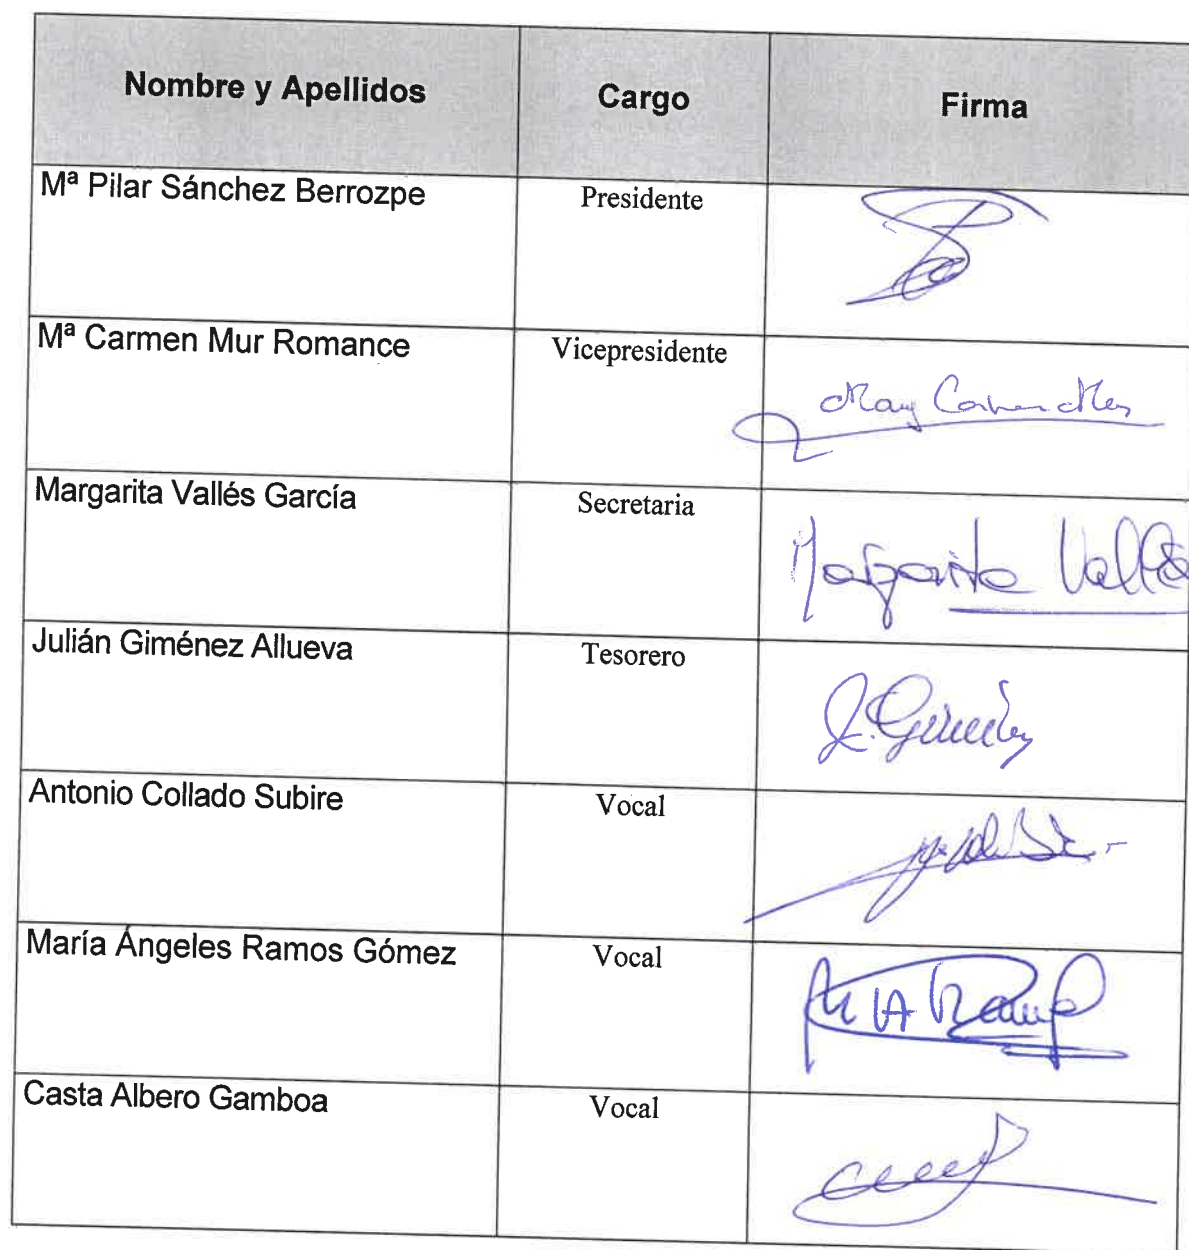 Nombre y Apellidos Cargo Firma
Mª Pilar Sánchez Berrozpe Presidente
Mª Carmen Mur Romance Vicepresidente
Margarita Vallés García Secretaria Margarita Vallés
Julián Giménez Allueva Tesorero J. Giménez
Antonio Collado Subire Vocal
María Ángeles Ramos Gómez Vocal
Casta Albero Gamboa Vocal